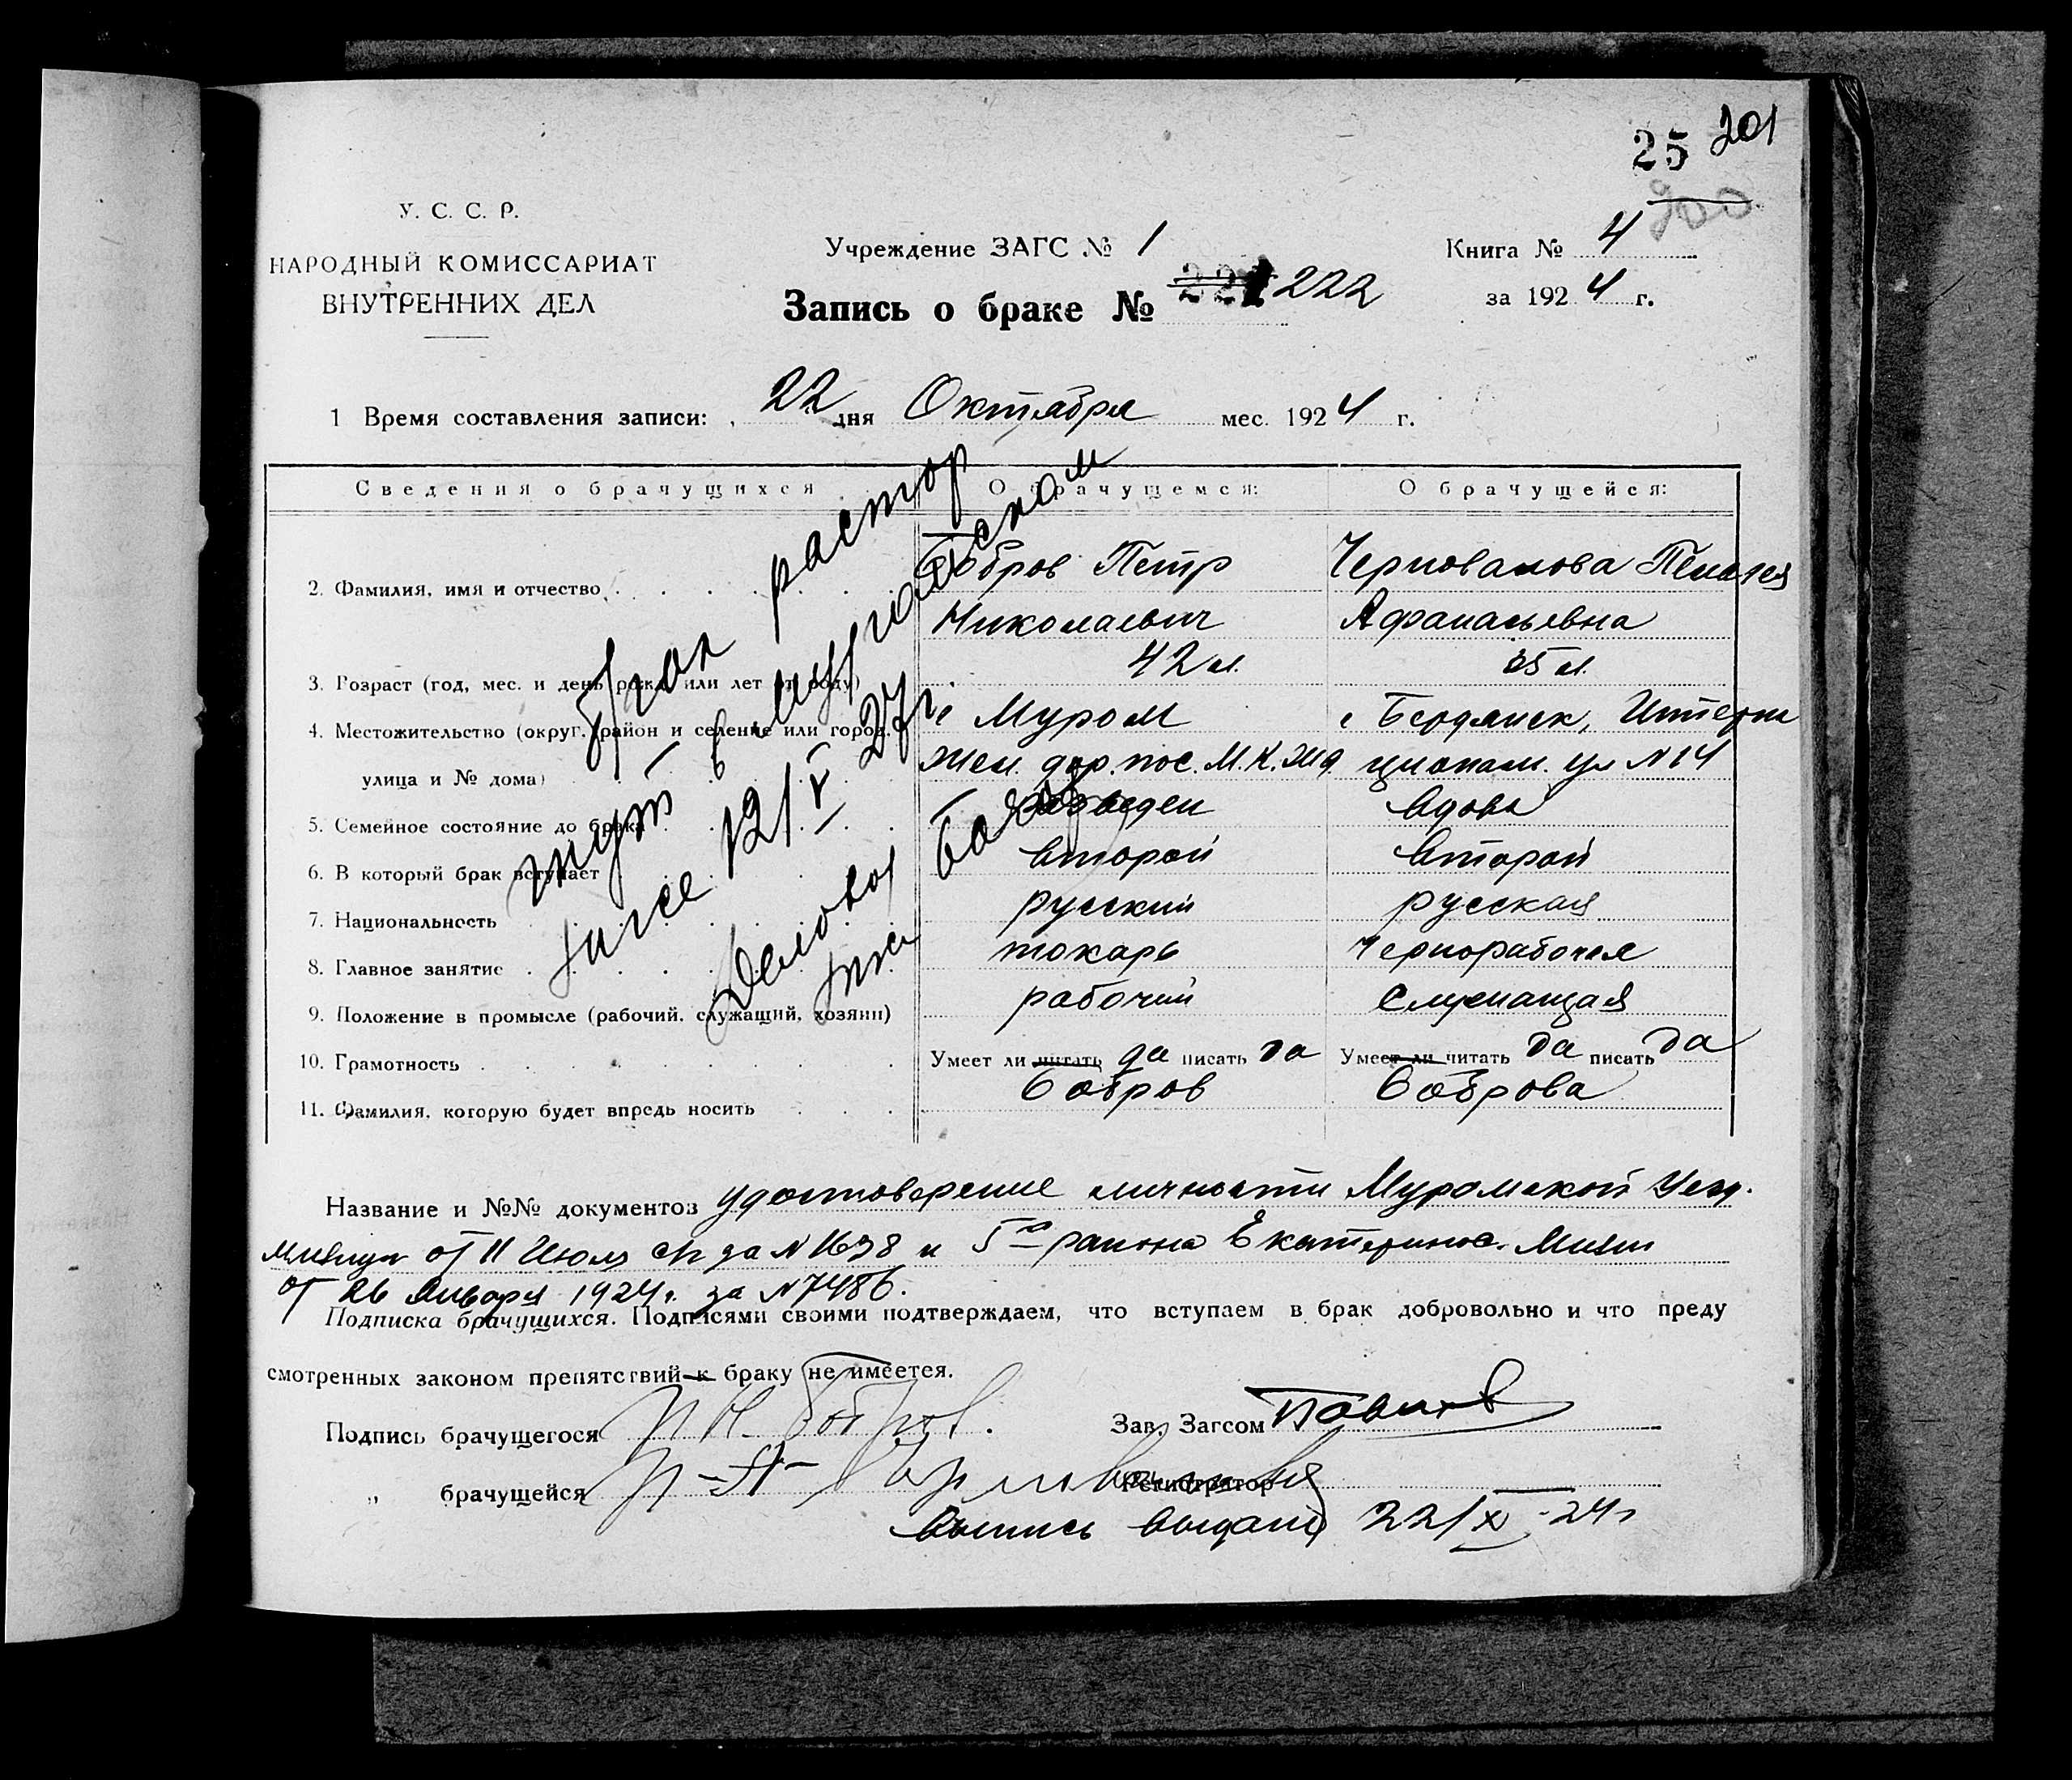 25 201
200
У. С. С. Р.
НАРОДНЫЙ КОМИССАРИАТ
ВНУТРЕННИХ ДЕЛ
Учреждение ЗАГС № 1
Книга № 4
Запись о браке № 221 222
за 1924 г.
1 Время составления записи: 22 дня Октября мес. 1924 г.
Сведения о брачущихся
О брачущемся:
О брачущейся:
2. Фамилия, имя и отчество
Бобров Петр
Николаевич
Черновалова Пелагея
Афанасьевна
3. Возраст (год, мес. и день рожд. или лет от роду)
42 л.
35 л.
4. Местожительство (округ. район и селение или город,
улица и № дома)
г Муром
Жел. дор. пос. М. К. Жд
г Бердянск, Интерна
ционал. ул N 14
5. Семейное состояние до брака
разведен
вдова
6. В который брак вступает
второй
второй
7. Национальность
русский
русская
8. Главное занятие
токарь
Чернорабочая
9. Положение в промысле (рабочий, служащий, хозяин)
рабочий
Служащая
10. Грамотность
Умеет ли читать да писать да
Умеет ли читать да писать да
11. Фамилия, которую будет впредь носить
Бобров
Боброва
Брак растор
гнут в
Загсе 12/X 27 г.
Деловод
Название и №№ документов удостоверение личности Муромской Уезд.
милиции от 11 Июля с/г за N 1638 и 5го района Екатеринос. Мили
от 26 Января 1924 г. за N 7486.
Подписка брачущихся. Подписями своими подтверждаем, что вступаем в брак добровольно и что преду
смотренных законом препятствий к браку не имеется.
Подпись брачущегося П Н Бобров.
Зав. Загсом
„ брачущейся П-А-
Регистратор
Выпись выдана 22/X-24 г